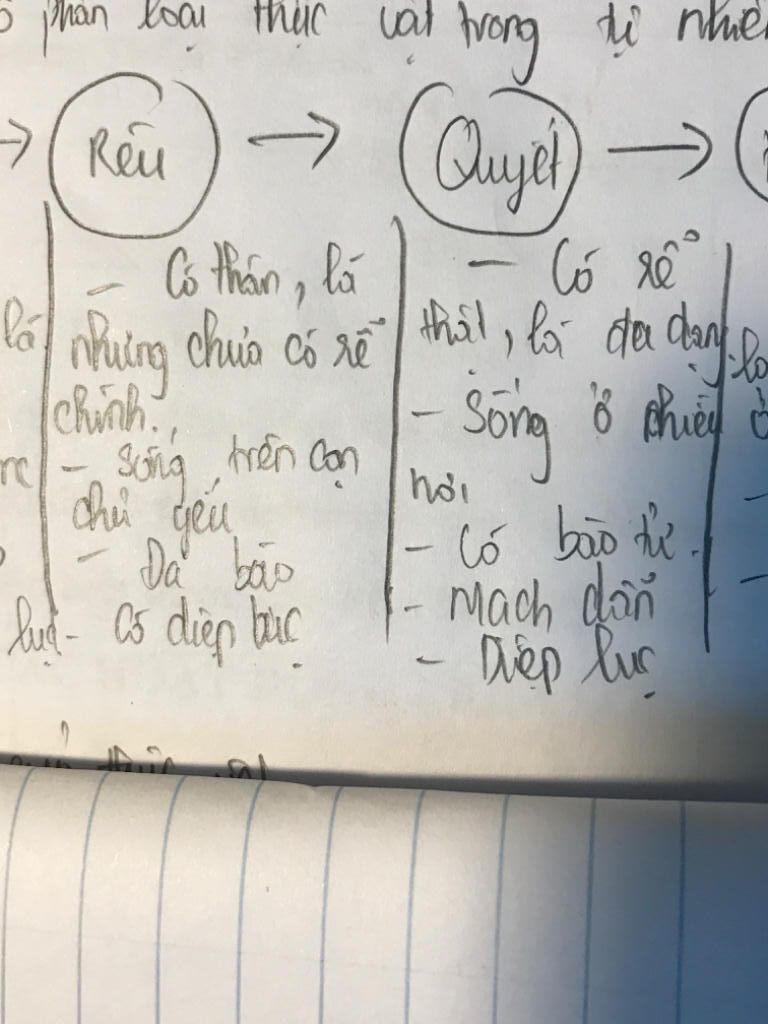 phân loại thực vật trong tự nhiên
→ Rêu → Quyết →
lá
- Có thân, lá
nhưng chưa có rễ
chính.
- Sống trên cạn
chủ yếu
- Đa bào
- Có diệp lục
lục
- Có rễ
thật, lá đa dạng.
- Sống ở nhiều
nơi
- Có bào tử.
- Mạch dẫn
- Diệp lục